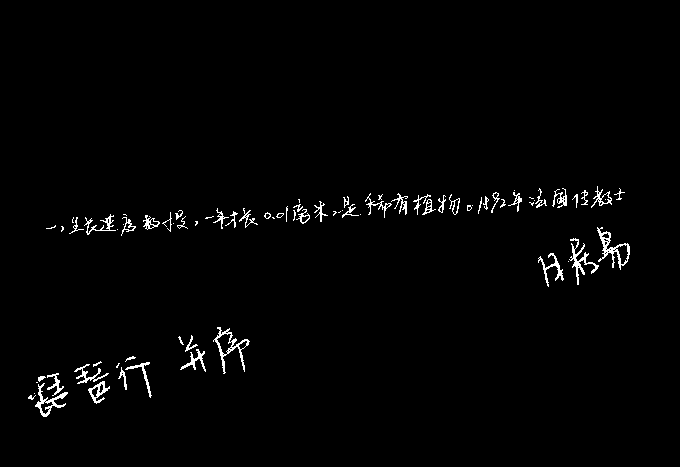 一，生长速度极慢，一年才长0.01厘米，是稀有植物。1892年法国传教士
白居易
琵琶行 并序